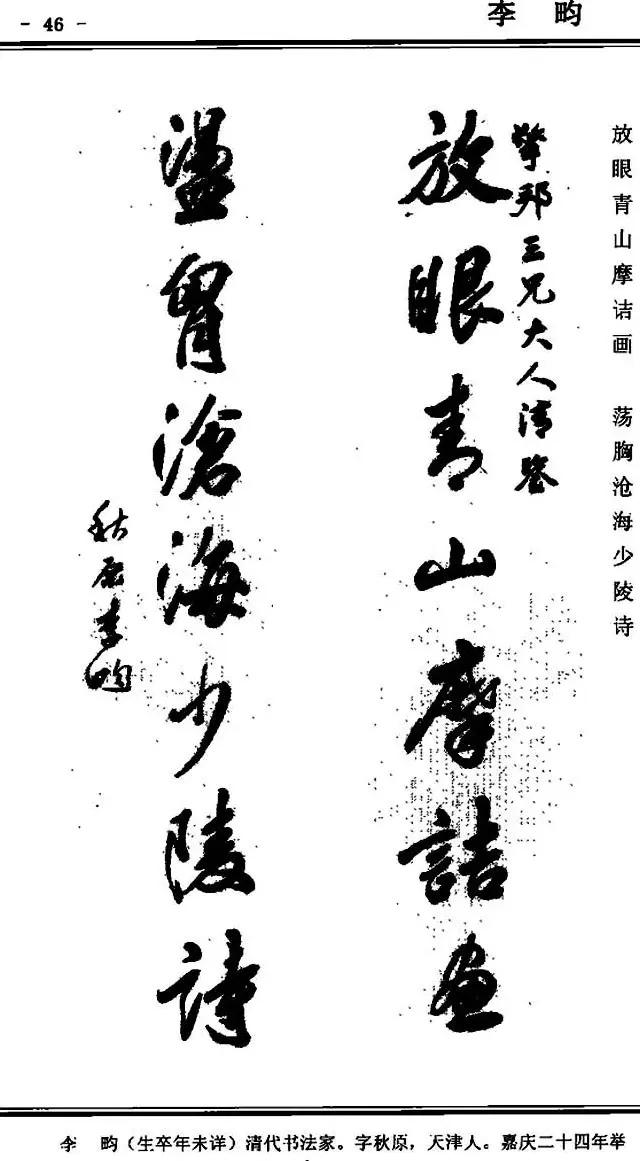 - 46 -
李 畇
放眼青山摩诘画 荡胸沧海少陵诗
擎邦三兄大人清鉴
放眼青山摩詰画
盪胷滄海少陵詩
秋原李畇
李 畇（生卒年未详）清代书法家。字秋原，天津人。嘉庆二十四年举